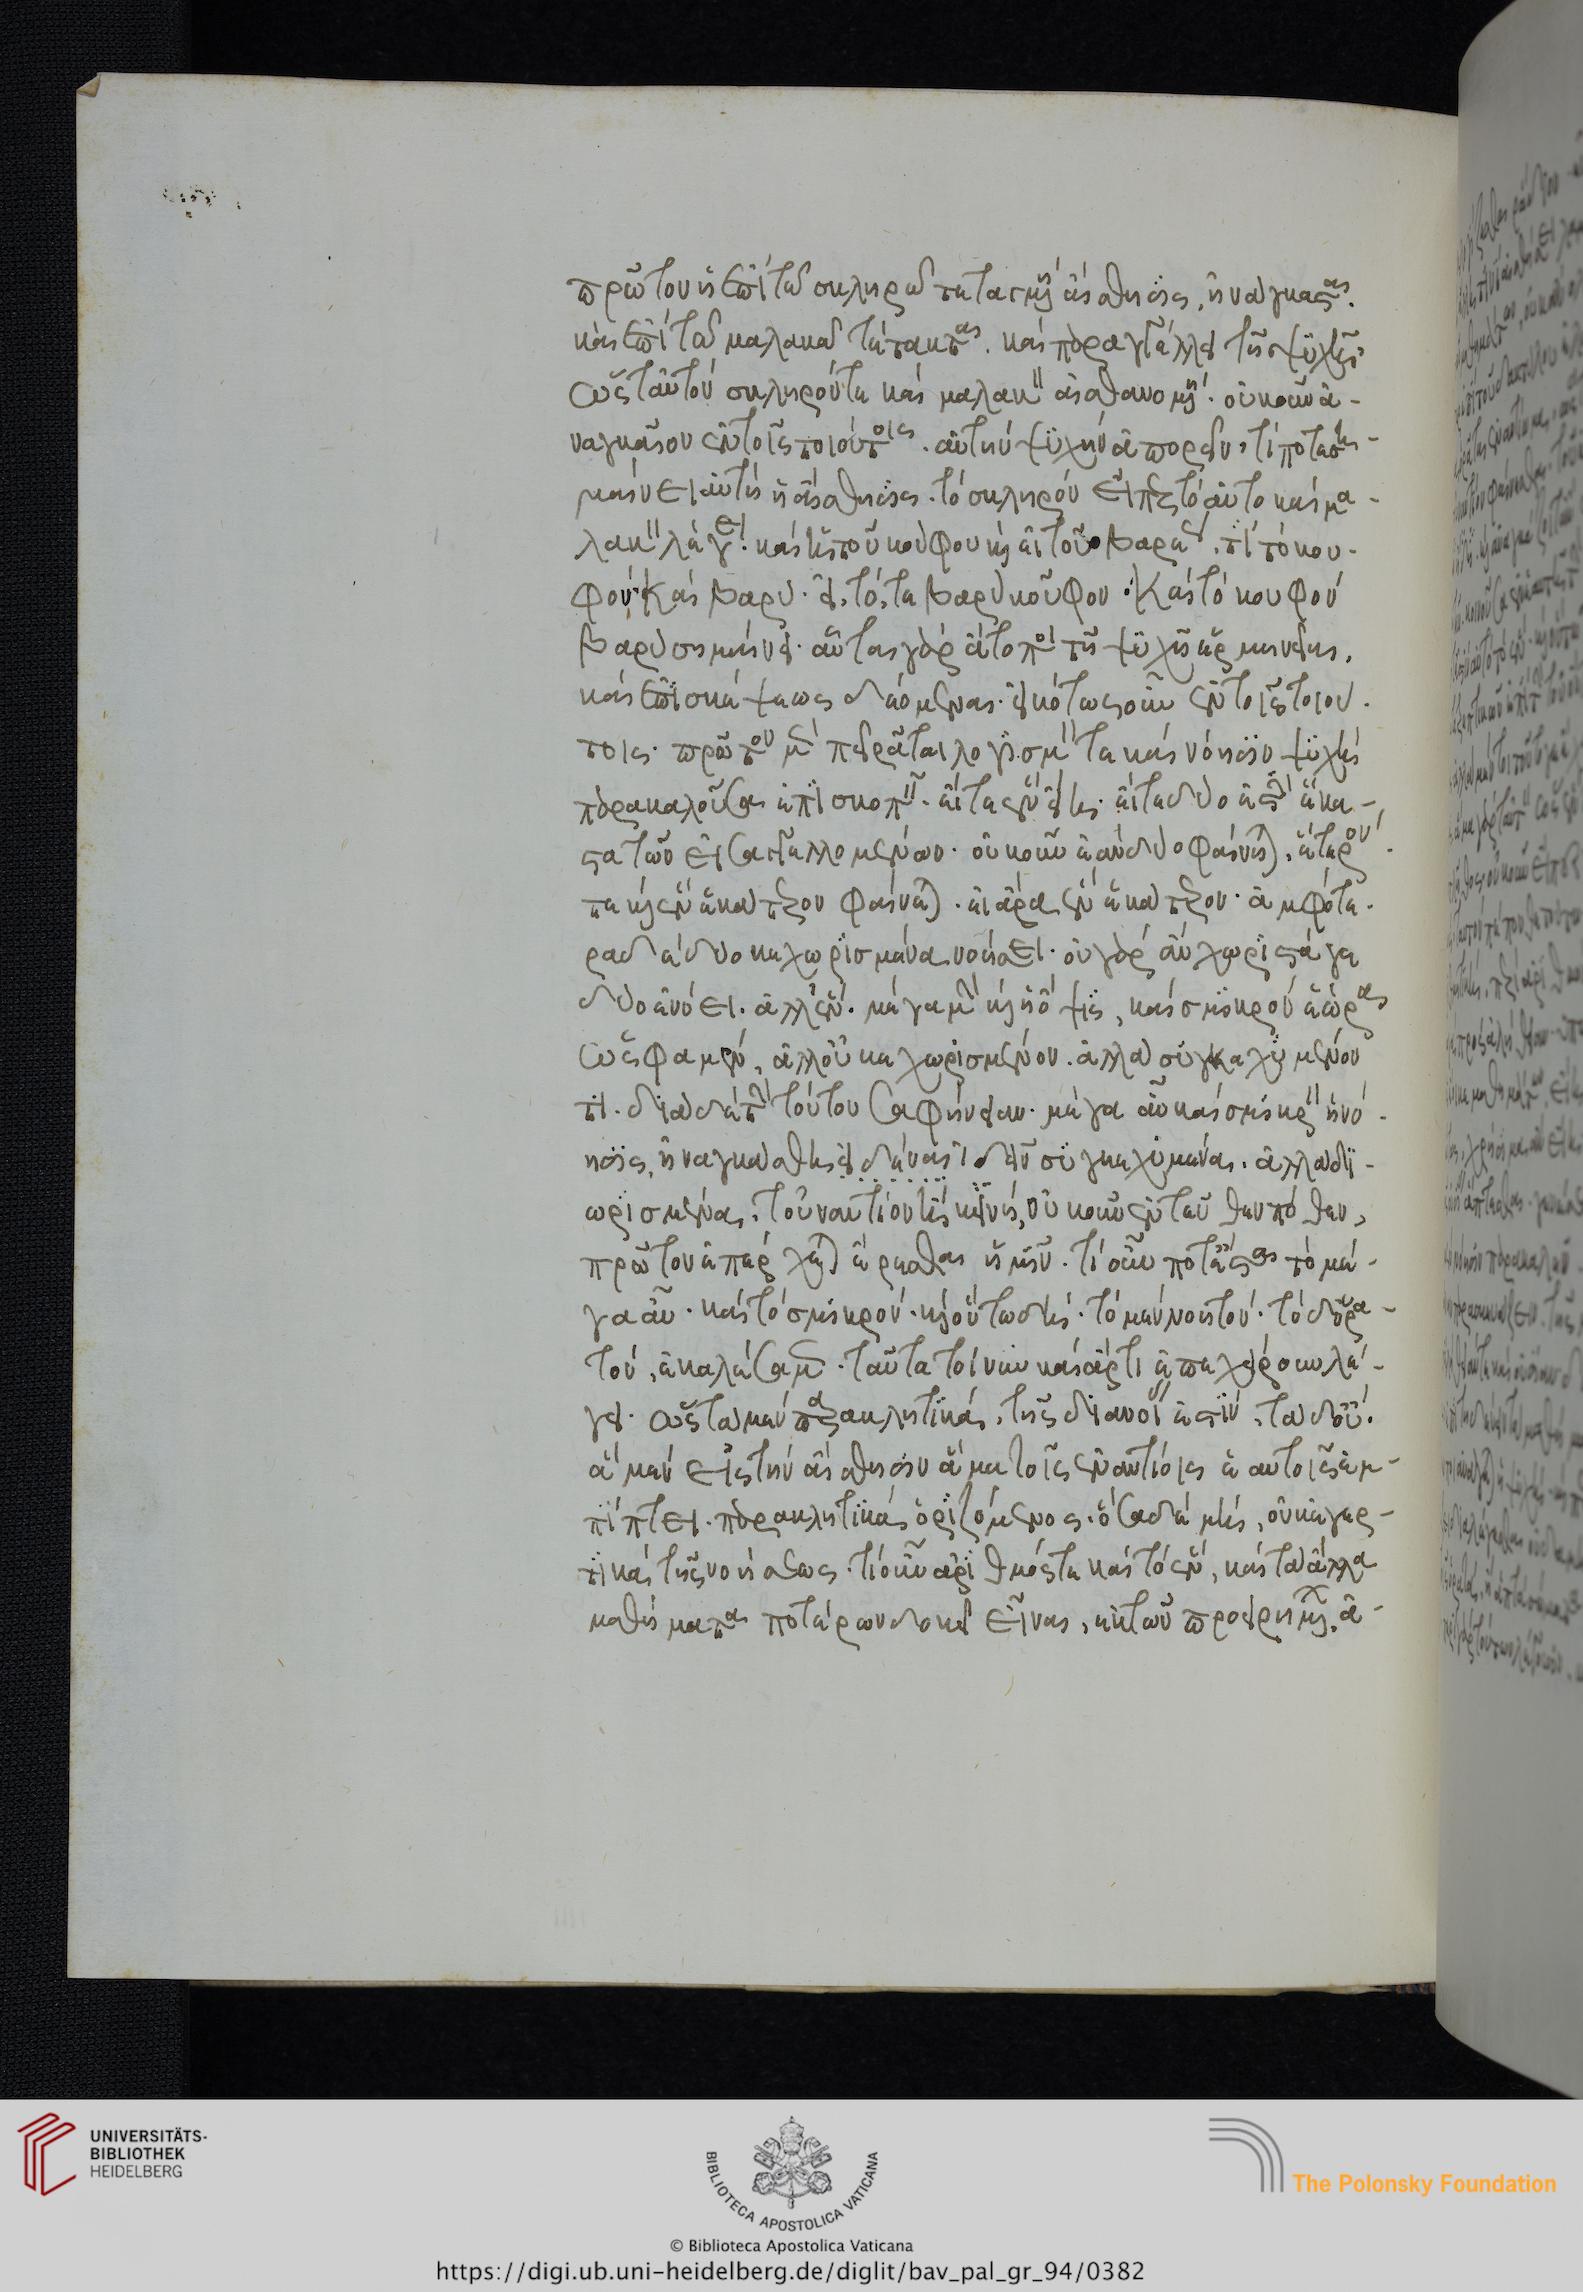 πρῶτον ἡ ἐπὶ τῶ σκληρῶ τεταγμένη αἴσθησις, ἠνάγκασται.
καὶ ἐπὶ τῶ μαλακῶ τετάχθαι. καὶ παραγγέλλει τῆ ψυχῆ
ὡς ταὐτὸν σκληρόν τε καὶ μαλακὸν αἰσθανομένη. οὐκοῦν ἀ-
ναγκαῖον ἐν τοῖς τοιούτοις. αὖ τὴν ψυχὴν ἀπορεῖν, τί ποτε ση-
μαίνει αὐτὴ ἡ αἴσθησις. τὸ σκληρὸν εἴπερ τὸ αὐτὸ καὶ μα-
λακὸν λέγει. καὶ ἡ τοῦ κούφου καὶ ἡ τοῦ βαρέος, τί τὸ κου-
φον καὶ βαρὺ. εἰ τό, τε βαρὺ κοῦφον. καὶ τὸ κουφον
βαρὺ σημαίνει. αὗται γὰρ ἄτοποι τῆ ψυχῆ ἑρμηνεῖαι,
καὶ ἐπισκέψεως δεόμεναι. εἰκότως οὖν ἐν τοῖς τοιού-
τοις. πρῶτον μὲν πειρᾶται λογισμόν τε καὶ νόησιν ψυχὴ
παρακαλοῦσα ἐπισκοπεῖν. εἴτε ἓν εἴτε δύο ἐστὶν ἕκα-
στα τῶν εἰσαγγελλομένων. οὐκοῦν ἐὰν δύο φαίνηται, ἕτερόν
τε καὶ ἓν ἑκάτερον φαίνεται. εἰ ἄρα ἓν ἑκάτερον. ἀμφότε-
ρα δὲ δύο κεχωρισμένα νοήσει. οὐ γὰρ ἂν χωριστά γε
δύο ἐνόει. ἀλλ' ἕν. μέγα μὴν καὶ ἡ ὄψις, καὶ σμικρὸν ἑώρα
ὥς φαμεν, ἀλλ' οὐ κεχωρισμένον. ἀλλὰ συγκεχυμένον
τι. διὰ δὲ τὴν τούτου σαφήνειαν. μέγα αὖ καὶ σμικρὸν ἡ νό-
ησις, ἠναγκάσθη εἰδέναι ἰδεῖν συγκεχυμένα. ἀλλὰ δι-
ωρισμένα. τοὐναντίον ἢ κείνη, οὐκοῦν ἐντεῦθεν ποθεν,
πρῶτον ἐπέρχεται ἐρέσθαι ἡμῖν. τί οὖν ποτέ ἐστι τὸ μέ-
γα αὖ. καὶ τὸ σμικρόν. καὶ οὕτω δὴ. τὸ μὲν νοητόν. τὸ δὲ ὁρα-
τόν, ἐκαλέσαμεν. ταῦτα τοίνυν καὶ ἄρτι ἐπεχείρουν λέ-
γειν. ὡς τὰ μὲν παρακλητικὰ, τῆς διανοίας ἐστὶν, τὰ δ' οὔ.
ἃ μὲν εἰς τὴν αἴσθησιν ἅμα τοῖς ἐναντίοις ἑαυτοῖς ἐμ-
πίπτει. παρακλητικὰ ὁριζόμενος. ὅσα δὲ μὴ, οὐκ ἐγερ-
τικὰ τῆς νοήσεως. τί οὖν ἀριθμός τε καὶ τὸ ἕν, καὶ τὰ ἄλλα
μαθήματα ποτέρων δοκεῖ εἶναι, ἐκ τῶν προειρημένων, ἀ-
UNIVERSITÄTS-
BIBLIOTHEK
HEIDELBERG
BIBLIOTECA APOSTOLICA VATICANA
The Polonsky Foundation
© Biblioteca Apostolica Vaticana
https://digi.ub.uni-heidelberg.de/diglit/bav_pal_gr_94/0382